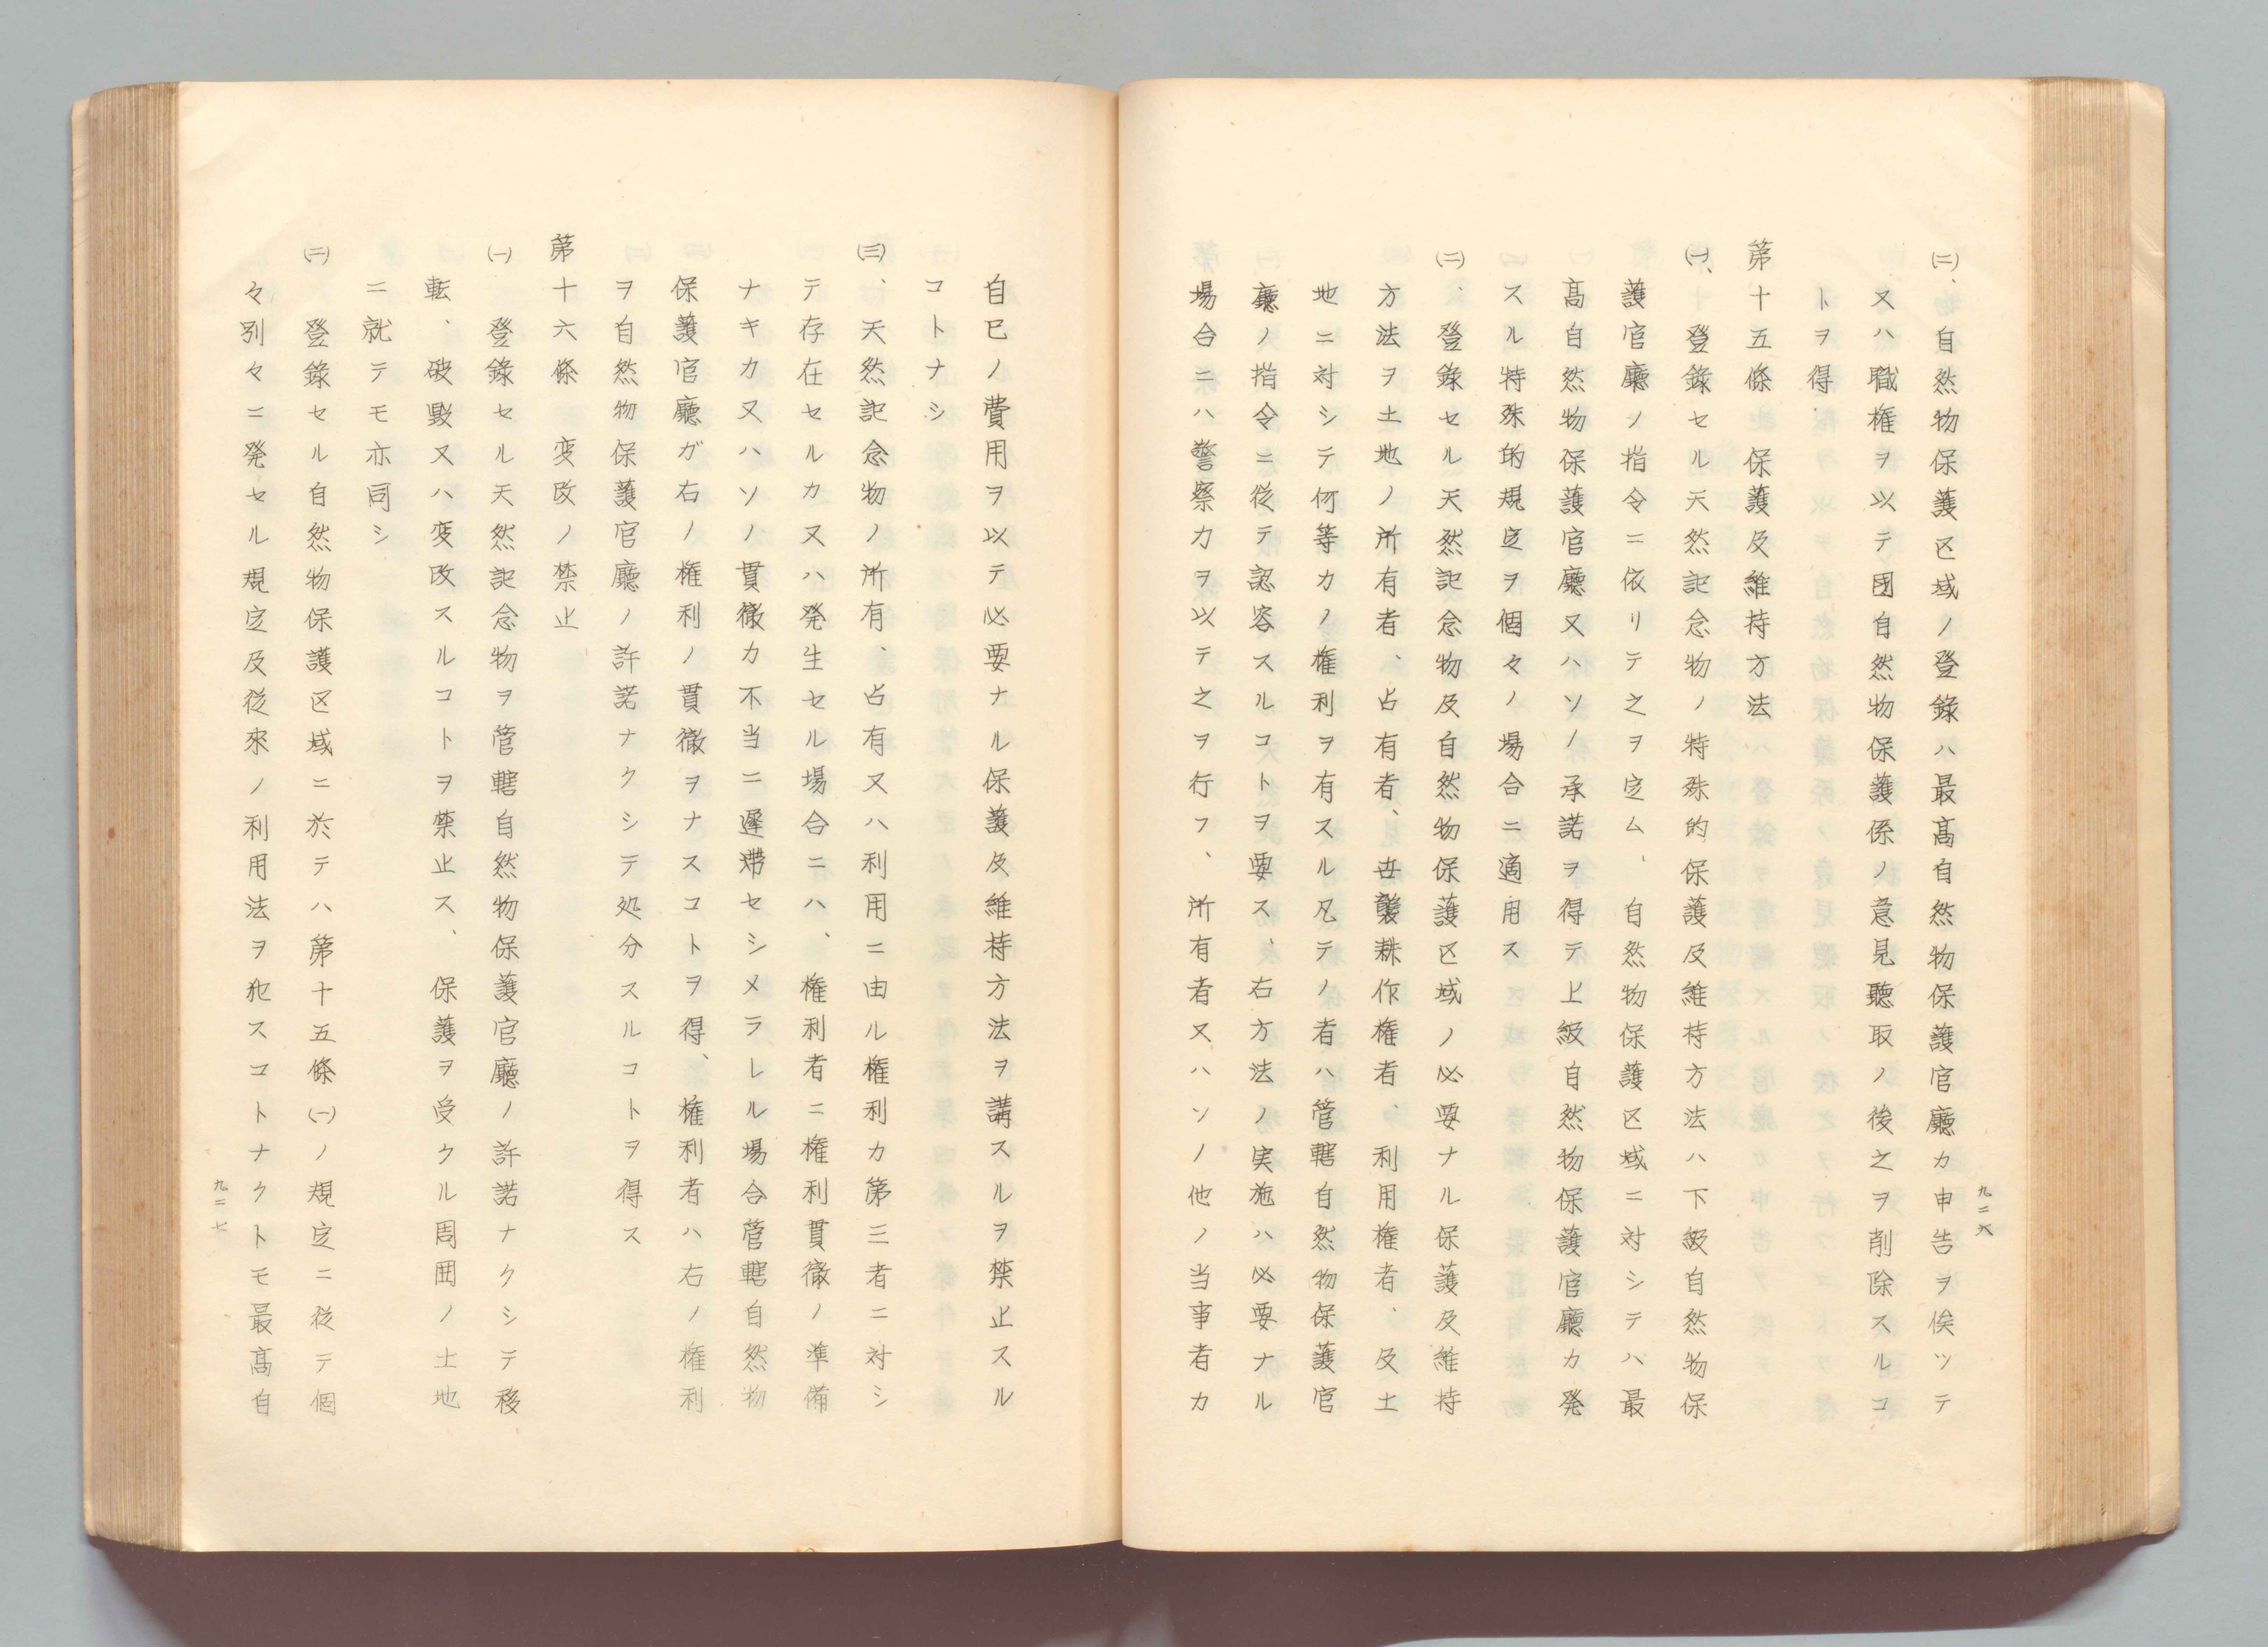 ㈡、自然物保護区域ノ登錄ハ最高自然物保護官廳カ申告ヲ俟ツテ
又ハ職権ヲ以テ国自然物保護係ノ意見聽取ノ後之ヲ削除スルコ
トヲ得
第十五條　保護及維持方法
㈠、登錄セル天然記念物ノ特殊的保護及維持方法ハ下級自然物保
護官廳ノ指令ニ依リテ之ヲ定ム、自然物保護区域ニ対シテハ最
高自然物保護官廳又ハソノ承諾ヲ得テ上級自然物保護官廳カ発
スル特殊的規定ヲ個々ノ場合ニ適用ス
㈡、登錄セル天然記念物及自然物保護区域ノ必要ナル保護及維持
方法ヲ土地ノ所有者、占有者、世襲耕作権者、利用権者、及土
地ニ対シテ何等カノ権利ヲ有スル凡テノ者ハ管轄自然物保護官
廳ノ指令ニ従テ認容スルコトヲ要ス、右方法ノ実施ハ必要ナル
場合ニハ警察力ヲ以テ之ヲ行フ、所有者又ハソノ他ノ当事者カ
九二六
自己ノ費用ヲ以テ必要ナル保護及維持方法ヲ講スルヲ禁止スル
コトナシ
㈢、天然記念物ノ所有、占有又ハ利用ニ由ル権利カ第三者ニ対シ
テ存在セルカ又ハ発生セル場合ニハ、権利者ニ権利貫徹ノ準備
ナキカ又ハソノ貫徹カ不当ニ遅滞セシメラレル場合管轄自然物
保護官廳ガ右ノ権利ノ貫徹ヲナスコトヲ得、権利者ハ右ノ権利
ヲ自然物保護官廳ノ許諾ナクシテ処分スルコトヲ得ス
第十六條　変改ノ禁止
㈠　登錄セル天然記念物ヲ管轄自然物保護官廳ノ許諾ナクシテ移
転、破毀又ハ変改スルコトヲ禁止ス、保護ヲ受クル周囲ノ土地
ニ就テモ亦同シ
㈡　登錄セル自然物保護区域ニ於テハ第十五條㈠ノ規定ニ従テ個
々別々ニ発セル規定及従來ノ利用法ヲ犯スコトナクトモ最高自
九二七